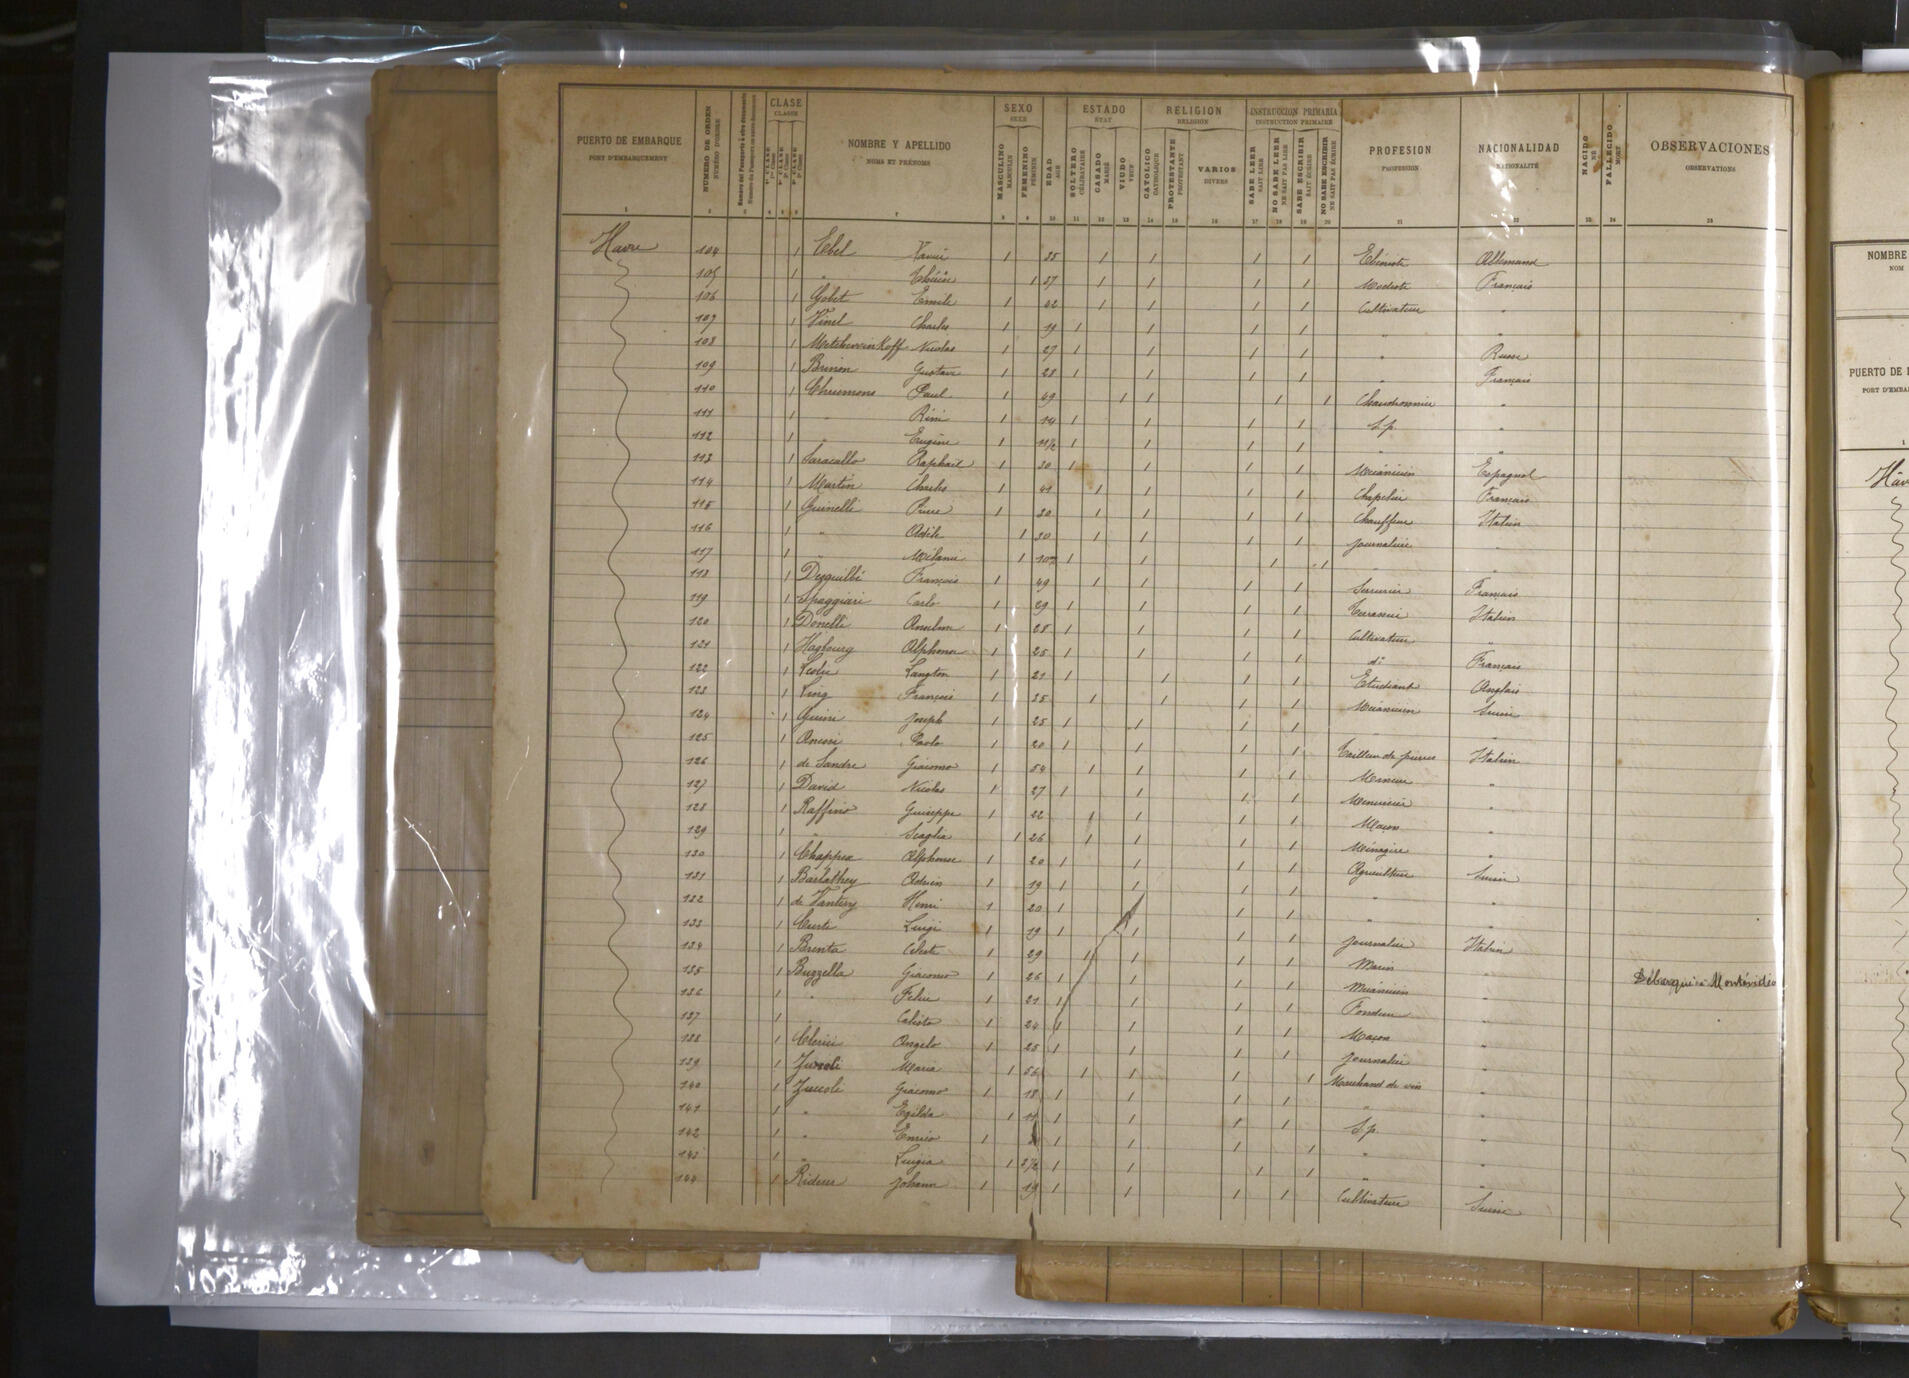 PUERTO DE EMBARQUE
PORT D'EMBARQUEMENT
NUMERO DE ORDEN
NUMÉRO D'ORDRE
CLASE
CLASSE
NOMBRE Y APELLIDO
NOMS ET PRÉNOMS
SEXO
SEXE
MASCULINO
MASCULIN
FEMENINO
FÉMININ
EDAD
AGE
ESTADO
ÉTAT
SOLTERO
CÉLIBATAIRE
CASADO
MARIÉ
VIUDO
VEUF
RELIGION
RELIGION
CATOLICO
CATHOLIQUE
PROTESTANTE
PROTESTANT
VARIOS
DIVERS
INSTRUCCION PRIMARIA
INSTRUCTION PRIMAIRE
SABE LEER
SAIT LIRE
NO SABE LEER
NE SAIT PAS LIRE
SABE ESCRIBIR
SAIT ÉCRIRE
NO SABE ESCRIBIR
NE SAIT PAS ÉCRIRE
PROFESION
PROFESSION
NACIONALIDAD
NATIONALITÉ
NACIDO
NÉ
FALLECIDO
MORT
OBSERVACIONES
OBSERVATIONS
Havre 104 1 Ebel Xavier 1 35 1 1 1 1 Ebéniste Allemand
105 1 " 1 37 1 1 1 1 Modiste Français
106 1 Gobet Emile 1 42 1 1 1 1 Cultivateur "
107 1 Vinel Charles 1 19 1 1 1 1 " "
108 1 Nicolas 1 27 1 1 1 1 " Russe
109 1 Brinon Gustave 1 28 1 1 1 1 " Français
110 1 Paul 1 49 1 1 1 1 Chaudronnier "
111 1 " 1 14 1 1 1 1 S.p. "
112 1 " Eugène 1 11/2 1 1 1 1 " "
113 1 Saracallo Raphaël 1 30 1 1 1 1 Mécanicien Espagnol
114 1 Martin Charles 1 41 1 1 1 1 Chapelier Français
115 1 Guinelli 1 30 1 1 1 1 Chauffeur Italien
116 1 " Adèle 1 30 1 1 1 1 Journalière "
117 1 " Mélanie 1 1 1 1 1 " "
118 1 François 1 49 1 1 1 1 Serrurier Français
119 1 Spaggiari Carlo 1 29 1 1 1 1 Terrassier Italien
120 1 Donelli Anselme 1 28 1 1 1 1 Cultivateur "
121 1 Hagbourg Alphonse 1 25 1 1 1 1 do Français
122 1 Leslie Langton 1 21 1 1 1 1 Etudiant Anglais
123 1 Ling François 1 35 1 1 1 1 Mécanicien Suisse
124 1 Joseph 1 25 1 1 1 1 " "
125 1 Paolo 1 20 1 1 1 1 Tailleur de pierres Italien
126 1 de Sandre Giacomo 1 54 1 1 1 1 Mineur "
127 1 David Nicolas 1 27 1 1 1 1 Menuisier "
128 1 Raffino Guiseppe 1 22 1 1 1 1 Maçon "
129 1 " Scaglia 1 26 1 1 1 1 Ménagère "
130 1 Chappex Alphonse 1 20 1 1 1 1 Agriculteur Suisse
131 1 Barlathey Adrien 1 19 1 1 1 1 " "
132 1 de Vantery Henri 1 20 1 1 1 1 " "
133 1 Curti Luigi 1 19 1 1 1 1 Journalier Italien
134 1 Brenta Celeste 1 29 1 1 1 1 Marin "
135 1 Buzzella Giacomo 1 26 1 1 1 1 Mécanicien " Débarqué à Montévidéo
136 1 " Felice 1 21 1 1 1 1 Fondeur "
137 1 " Calisto 1 24 1 1 1 1 Maçon "
138 1 Clerici Angelo 1 25 1 1 1 1 Journalier "
139 1 Zuccoli Maria 1 56 1 1 1 1 Marchand de vin "
140 1 Zuccoli Giacomo 1 18 1 1 1 1 " "
141 1 " Egilda 1 11 1 1 1 1 S.p. "
142 1 " Enrico 1 1 1 1 1 " "
143 1 " Luigia 1 1 1 1 1 " "
144 1 Johann 1 19 1 1 1 1 Cultivateur Suisse
NOMBRE
NOM
PUERTO DE
PORT D'EMBA
Hav